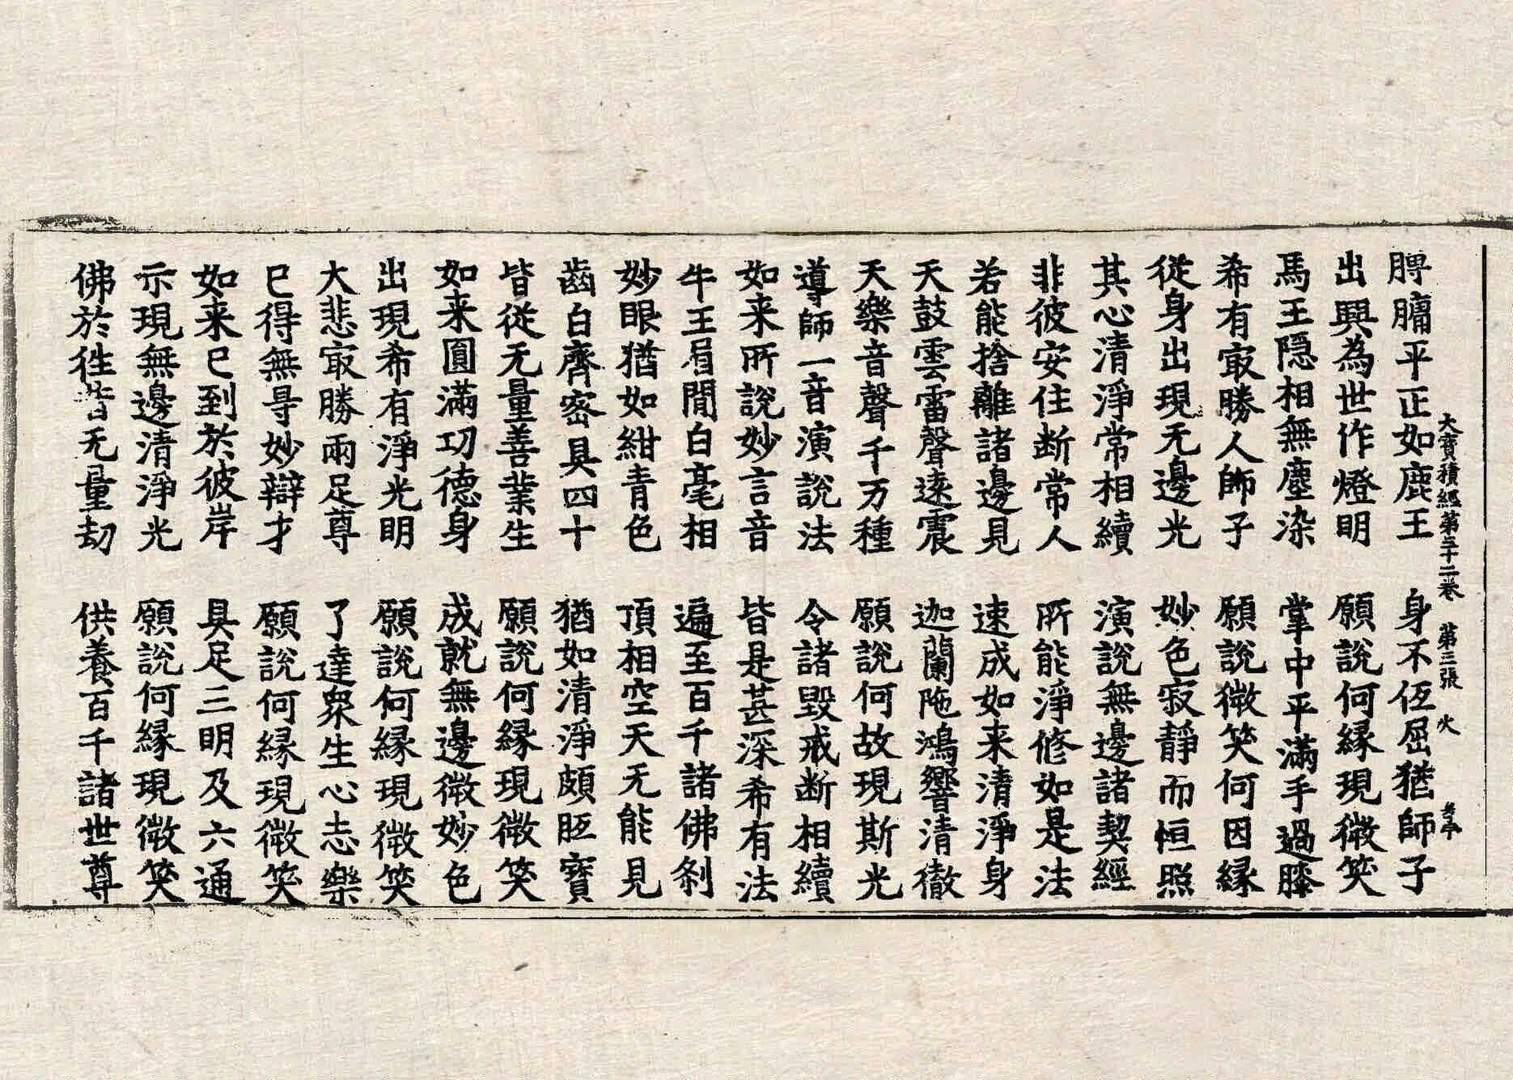 大寶積經第三十二卷　第三張　火
𨄔𦟛平正如鹿王　身不伍屈猶師子
出興為世作燈明　願說何縁現微笑
馬王隠相無塵染　掌中平滿手過膝
希有㝡勝人師子　願說微笑何因縁
從身出現无邊光　妙色寂靜而恒照
其心清淨常相續　演說無邊諸契經
非彼安住断常人　所能淨修如是法
若能捨離諸邊見　速成如来清淨身
天鼓雲雷聲遠震　迦蘭陁鴻響清徹
天樂音聲千万種　願說何故現斯光
導師一音演說法　令諸毀戒断相續
如来所說妙言音　皆是甚深希有法
牛王眉間白毫相　遍至百千諸佛刹
妙眼猶如紺青色　頂相空天无能見
齒白齊密具四十　猶如清淨頗胝寳
皆從无量善業生　願說何縁現微笑
如来圓滿功德身　成就無邊微妙色
出現希有淨光明　願說何縁現微笑
大悲㝡勝兩足尊　了達衆生心志樂
已得無㝵妙辯才　願說何縁現微笑
如来已到於彼岸　具足三明及六通
示現無邊清淨光　願說何縁現微笑
佛於徃昔无量劫　供養百千諸世尊